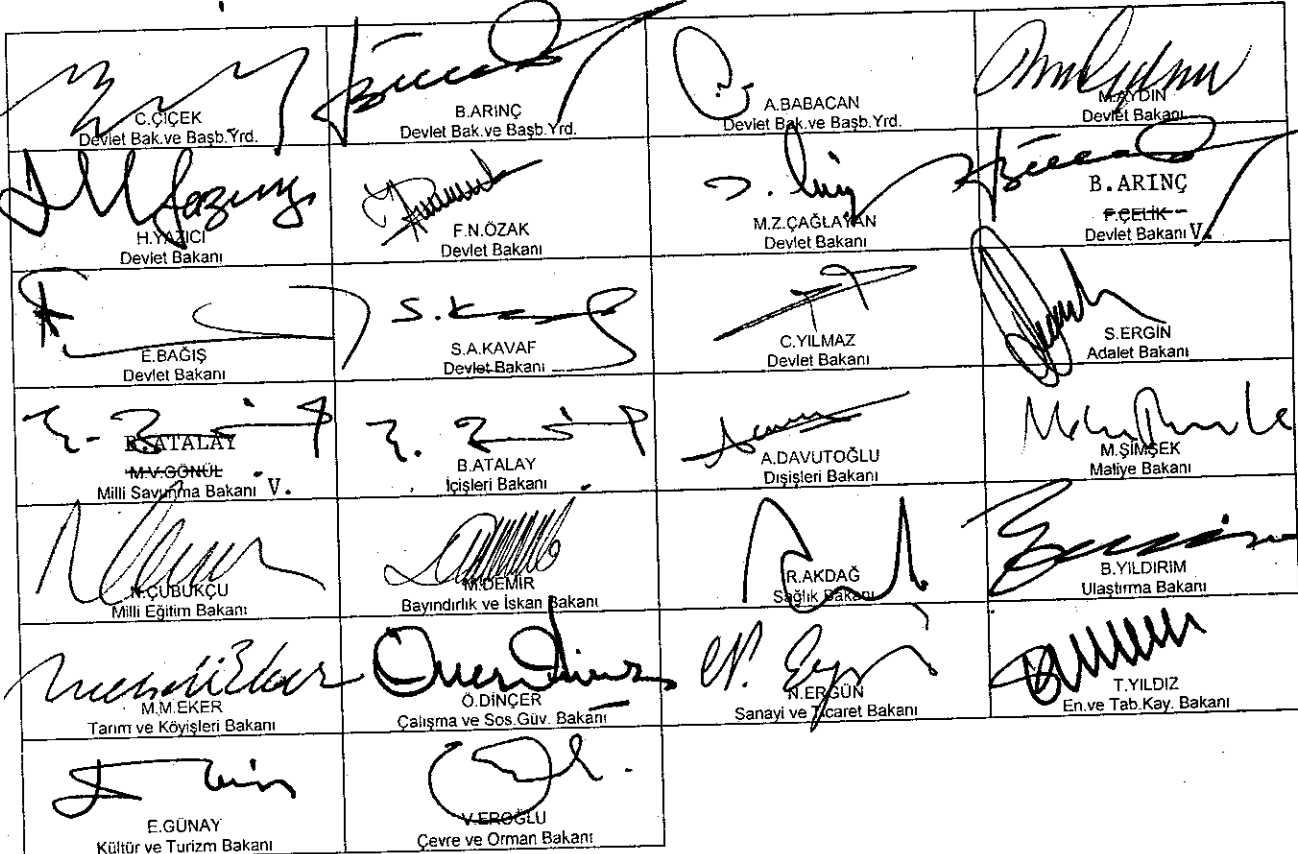 C.ÇİÇEK
Devlet Bak.ve Başb.Yrd.
B.ARINÇ
Devlet Bak.ve Başb.Yrd.
A.BABACAN
Devlet Bak.ve Başb.Yrd.
M.AYDIN
Devlet Bakanı
H.YAZICI
Devlet Bakanı
F.N.ÖZAK
Devlet Bakanı
M.Z.ÇAĞLAYAN
Devlet Bakanı
B.ARINÇ
F.ÇELİK
Devlet Bakanı V.
E.BAĞIŞ
Devlet Bakanı
S.A.KAVAF
Devlet Bakanı
C.YILMAZ
Devlet Bakanı
S.ERGİN
Adalet Bakanı
B.ATALAY
M.V.GÖNÜL
Milli Savunma Bakanı V.
B.ATALAY
İçişleri Bakanı
A.DAVUTOĞLU
Dışişleri Bakanı
M.ŞİMŞEK
Maliye Bakanı
N.ÇUBUKÇU
Milli Eğitim Bakanı
M.DEMİR
Bayındırlık ve İskan Bakanı
R.AKDAĞ
Sağlık Bakanı
B.YILDIRIM
Ulaştırma Bakanı
M.M.EKER
Tarım ve Köyişleri Bakanı
Ö.DİNÇER
Çalışma ve Sos.Güv. Bakanı
N.ERGÜN
Sanayi ve Ticaret Bakanı
T.YILDIZ
En.ve Tab.Kay. Bakanı
E.GÜNAY
Kültür ve Turizm Bakanı
V.EROĞLU
Çevre ve Orman Bakanı